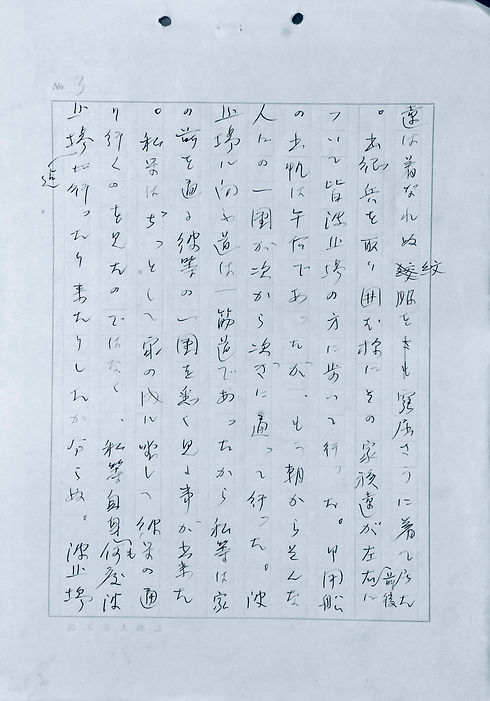 No. 3
達は着なれぬ紋服をさも窮屈さうに着て居た
。出征兵を取り囲む様にその家族達が左右に
最後
ついて皆波止場の方に歩って行った。甲用船
の出帆は午后であったが、もう朝からそんな
人々の一團が次から次ぎに通って行った。波
止場に向ふ道は一筋道であったから私等は家
の前を通る彼等の一團を悉く見る事が出来た
。私等はぢっとして家の内に坐して彼等の通
り行くのを見たのではなく、私等自身も何度波
止場迄行ったり来たりしたか分らぬ。波止場